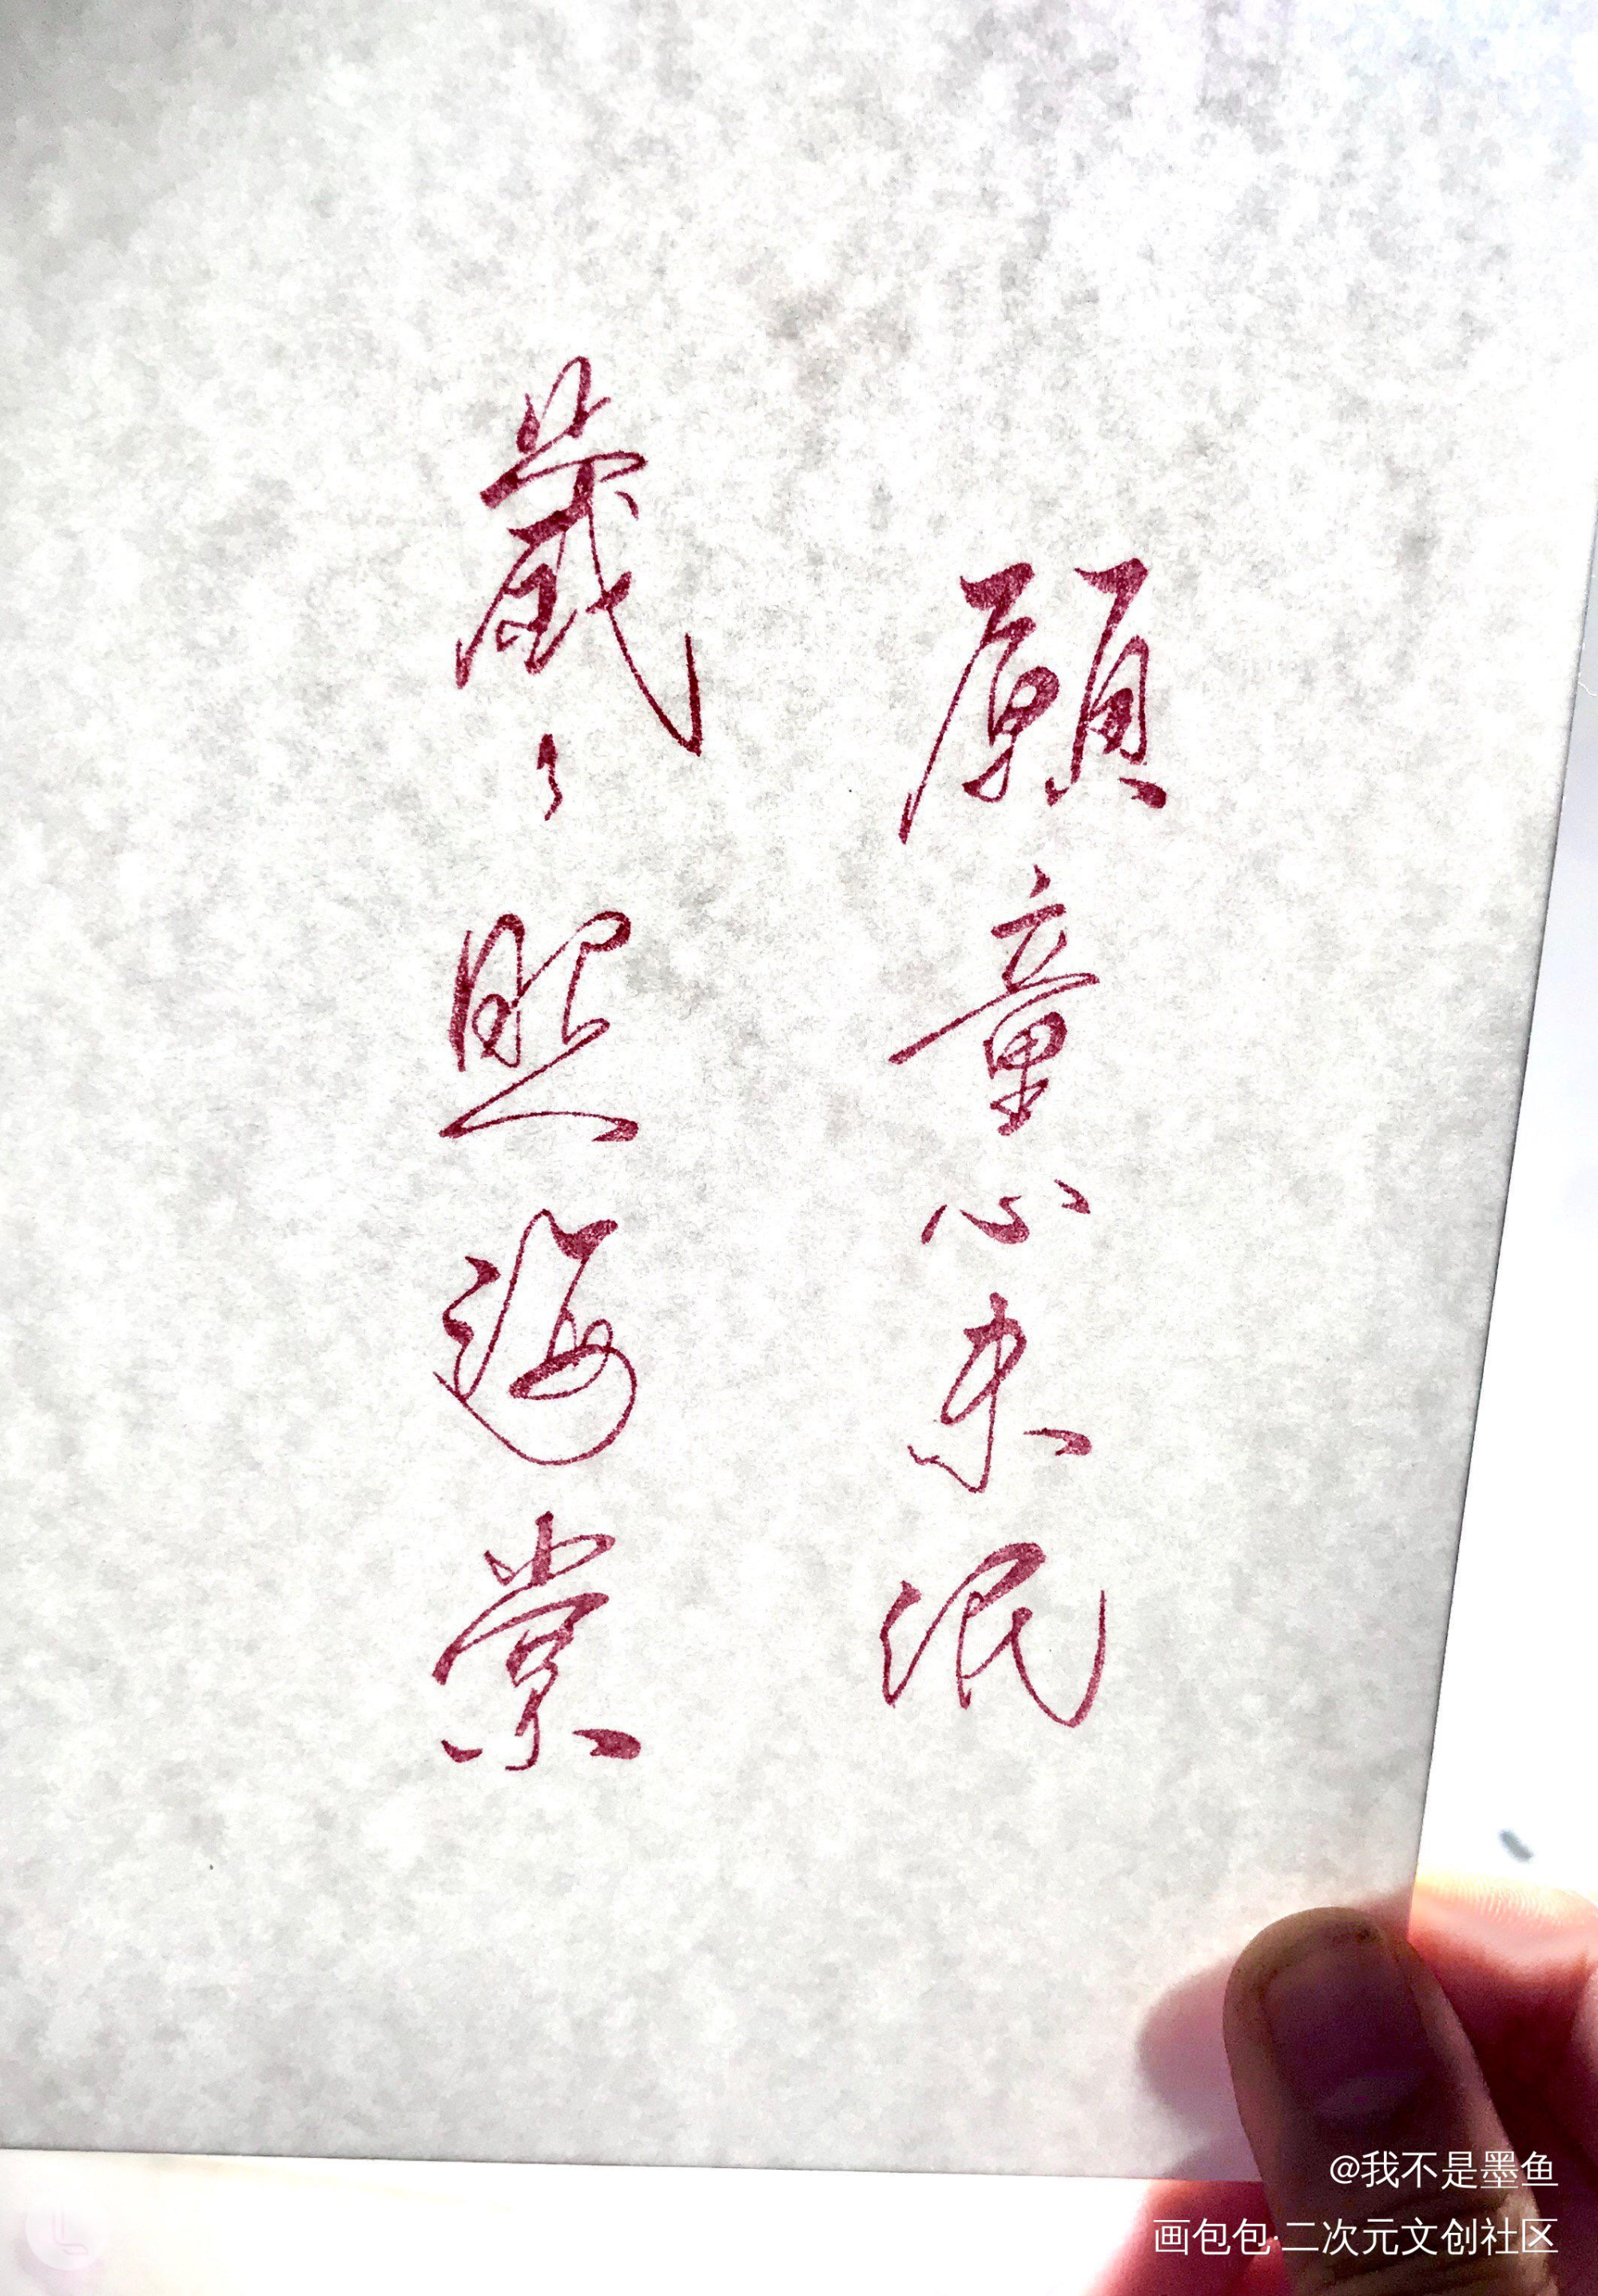 願童心未泯
歲々照海棠
@我不是墨鱼
画包包·二次元文创社区